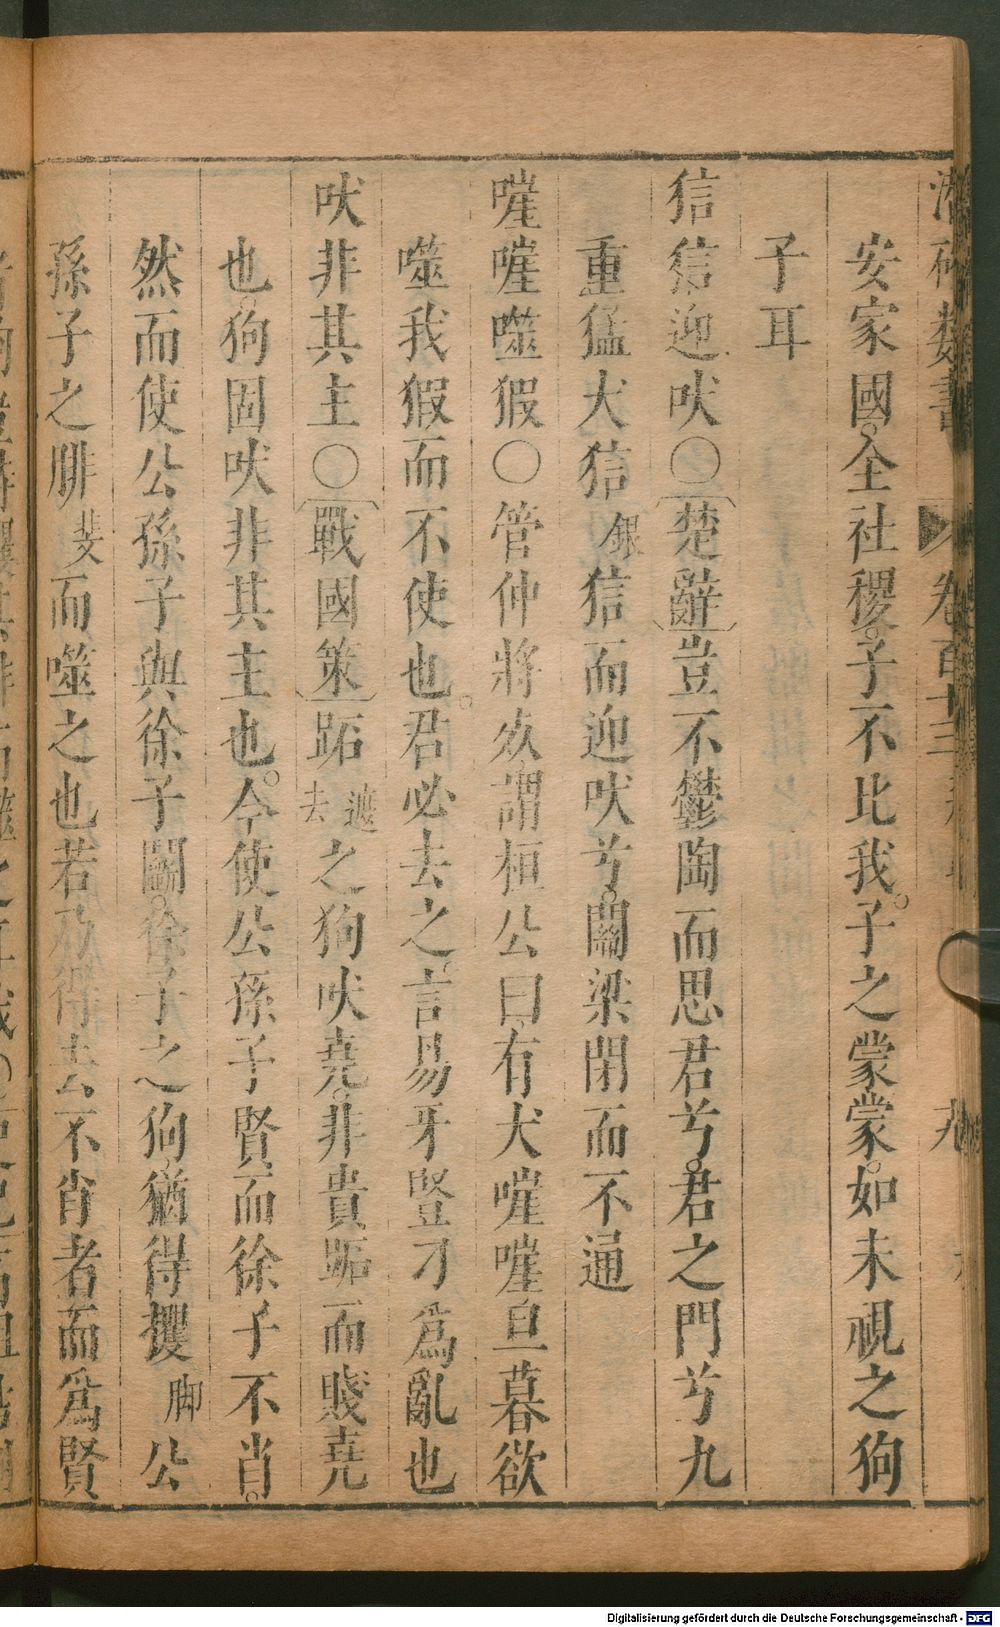 安家國全社稷子不比我子之蒙蒙如未視之狗
子耳
狺狺迎吠○楚辭豈不鬱陶而思君兮君之門兮九
重猛犬狺銀狺而迎吠兮關梁閉而不通
嘊嘊噬猳○管仲將疚謂桓公曰有犬嘊嘊旦暮欲
噬我猳而不使也君必去之言易牙豎刁為亂也
吠非其主○戰國策跖之狗吠堯非貴跖而賤堯
也狗固吠非其主也今使公孫子賢而徐子不肖
然而使公孫子與徐子鬬徐子之狗猶得攫脚公
孫子之腓斐而噬之也若乃得去不肖者而為賢
Digitalisierung gefördert durch die Deutsche Forschungsgemeinschaft - DFG